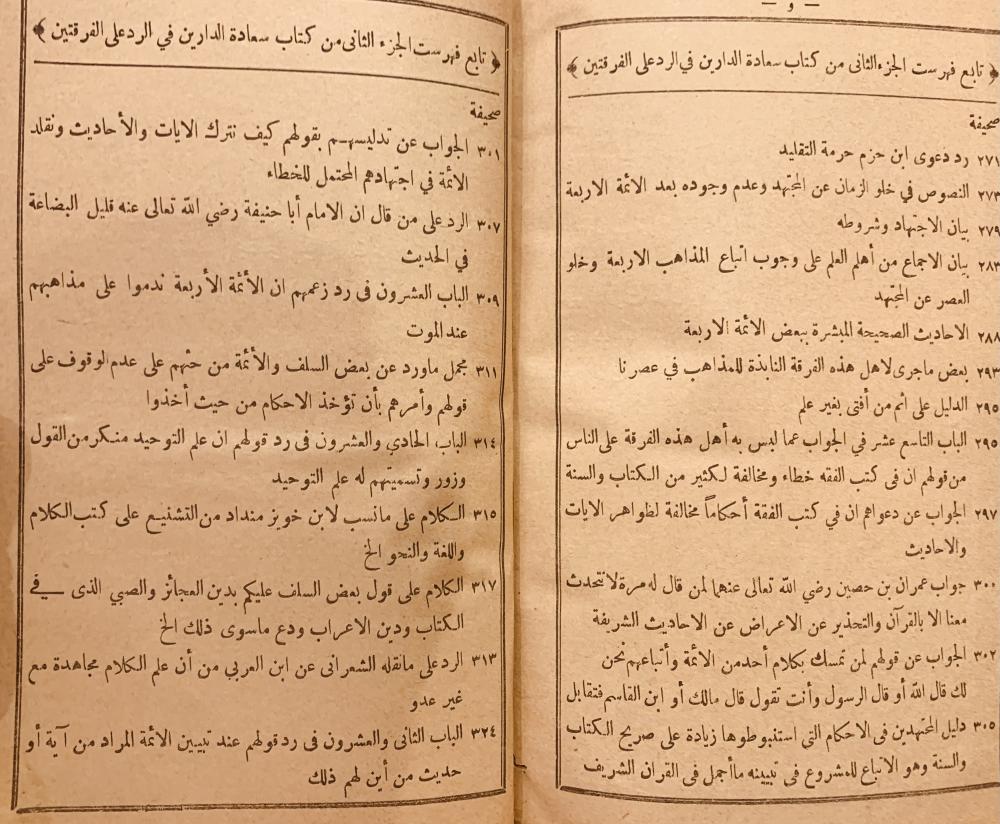 — و —
﴿ تابع فهرست الجزء الثانى من كتاب سعادة الدارين في الرد على الفرقتين ﴾
صحيفة
٢٧١ رد دعوى ابن حزم حرمة التقليد
٢٧٣ النصوص في خلو الزمان عن المجتهد وعدم وجوده بعد الائمة الاربعة
٢٧٩ بيان الاجتهاد وشروطه
٢٨٣ بيان الاجماع من أهلم العلم على وجوب اتباع المذاهب الاربعة وخلو
العصر عن المجتهد
٢٨٨ الاحاديث الصحيحة المبشرة ببعض الائمة الاربعة
٢٩٣ بعض ماجرى لاهل هذه الفرقة النابذة للمذاهب في عصرنا
٢٩٥ الدليل على اثم من أفتى بغير علم
٢٩٥ الباب التاسع عشر في الجواب عما لبس به أهل هذه الفرقة على الناس
من قولهم ان فى كتب الفقه خطاء ومخالفة لكثير من الكتاب والسنة
٢٩٧ الجواب عن دعواهم ان في كتب الفقة أحكاماً مخالفة لظواهر الايات
والاحاديث
٣٠٠ جواب عمران بن حصين رضي الله تعالى عنهما لمن قال له مرة لا تتحدث
معنا الا بالقرآن والتحذير عن الاعراض عن الاحاديث الشريفة
٣٠٢ الجواب عن قولهم لمن تمسك بكلام أحد من الائمة وأتباعهم نحن
لك قال الله أو قال الرسول وأنت تقول قال مالك أو ابن القاسم فتقابل
٣٠٥ دليل المجتهدين فى الاحكام التي استنبوطوها زيادة على صريح الكتاب
والسنة وهو الاتباع للمشروع فى تبيينه ماأجمل فى القران الشريف
﴿ تابع فهرست الجزء الثانى من كتاب سعادة الدارين في الرد على الفرقتين ﴾
صحيفة
٣٠١ الجواب عن تدليسهم بقولهم كيف نترك الايات والأحاديث ونقلد
الائمة في اجتهادهم المحتمل للخطاء
٣٠٧ الرد على من قال ان الامام أبا حنيفة رضي الله تعالى عنه قليل البضاعة
في الحديث
٣٠٩ الباب العشرون فى رد زعمهم ان الأئمة الأربعة ندموا على مذاهبهم
عند الموت
٣١١ مجمل ماورد عن بعض السلف والأئمة من حثهم على عدم الوقوف على
قولهم وأمرهم بأن تؤخذ الاحكام من حيث أخذوا
٣١٤ الباب الحادي والعشرون فى رد قولهم ان علم التوحيد منكر من القول
وزور وتسميتهم له علم التوحيد
٣١٥ الكلام على مانسب لابن خويز منداد من التشنيع على كتب الكلام
واللغة والنحو الخ
٣١٧ الكلام على قول بعض السلف عليكم بدين العجائز والصبي الذى في
الكتاب ودين الاعراب ودع ماسوى ذلك الخ
٣١٣ الرد على مانقله الشعرانى عن ابن العربي من أن علم الكلام مجاهدة مع
غير عدو
٣٢٤ الباب الثانى والعشرون فى رد قولهم عند تبيين الائمة المراد من آية أو
حديث من أين لهم ذلك